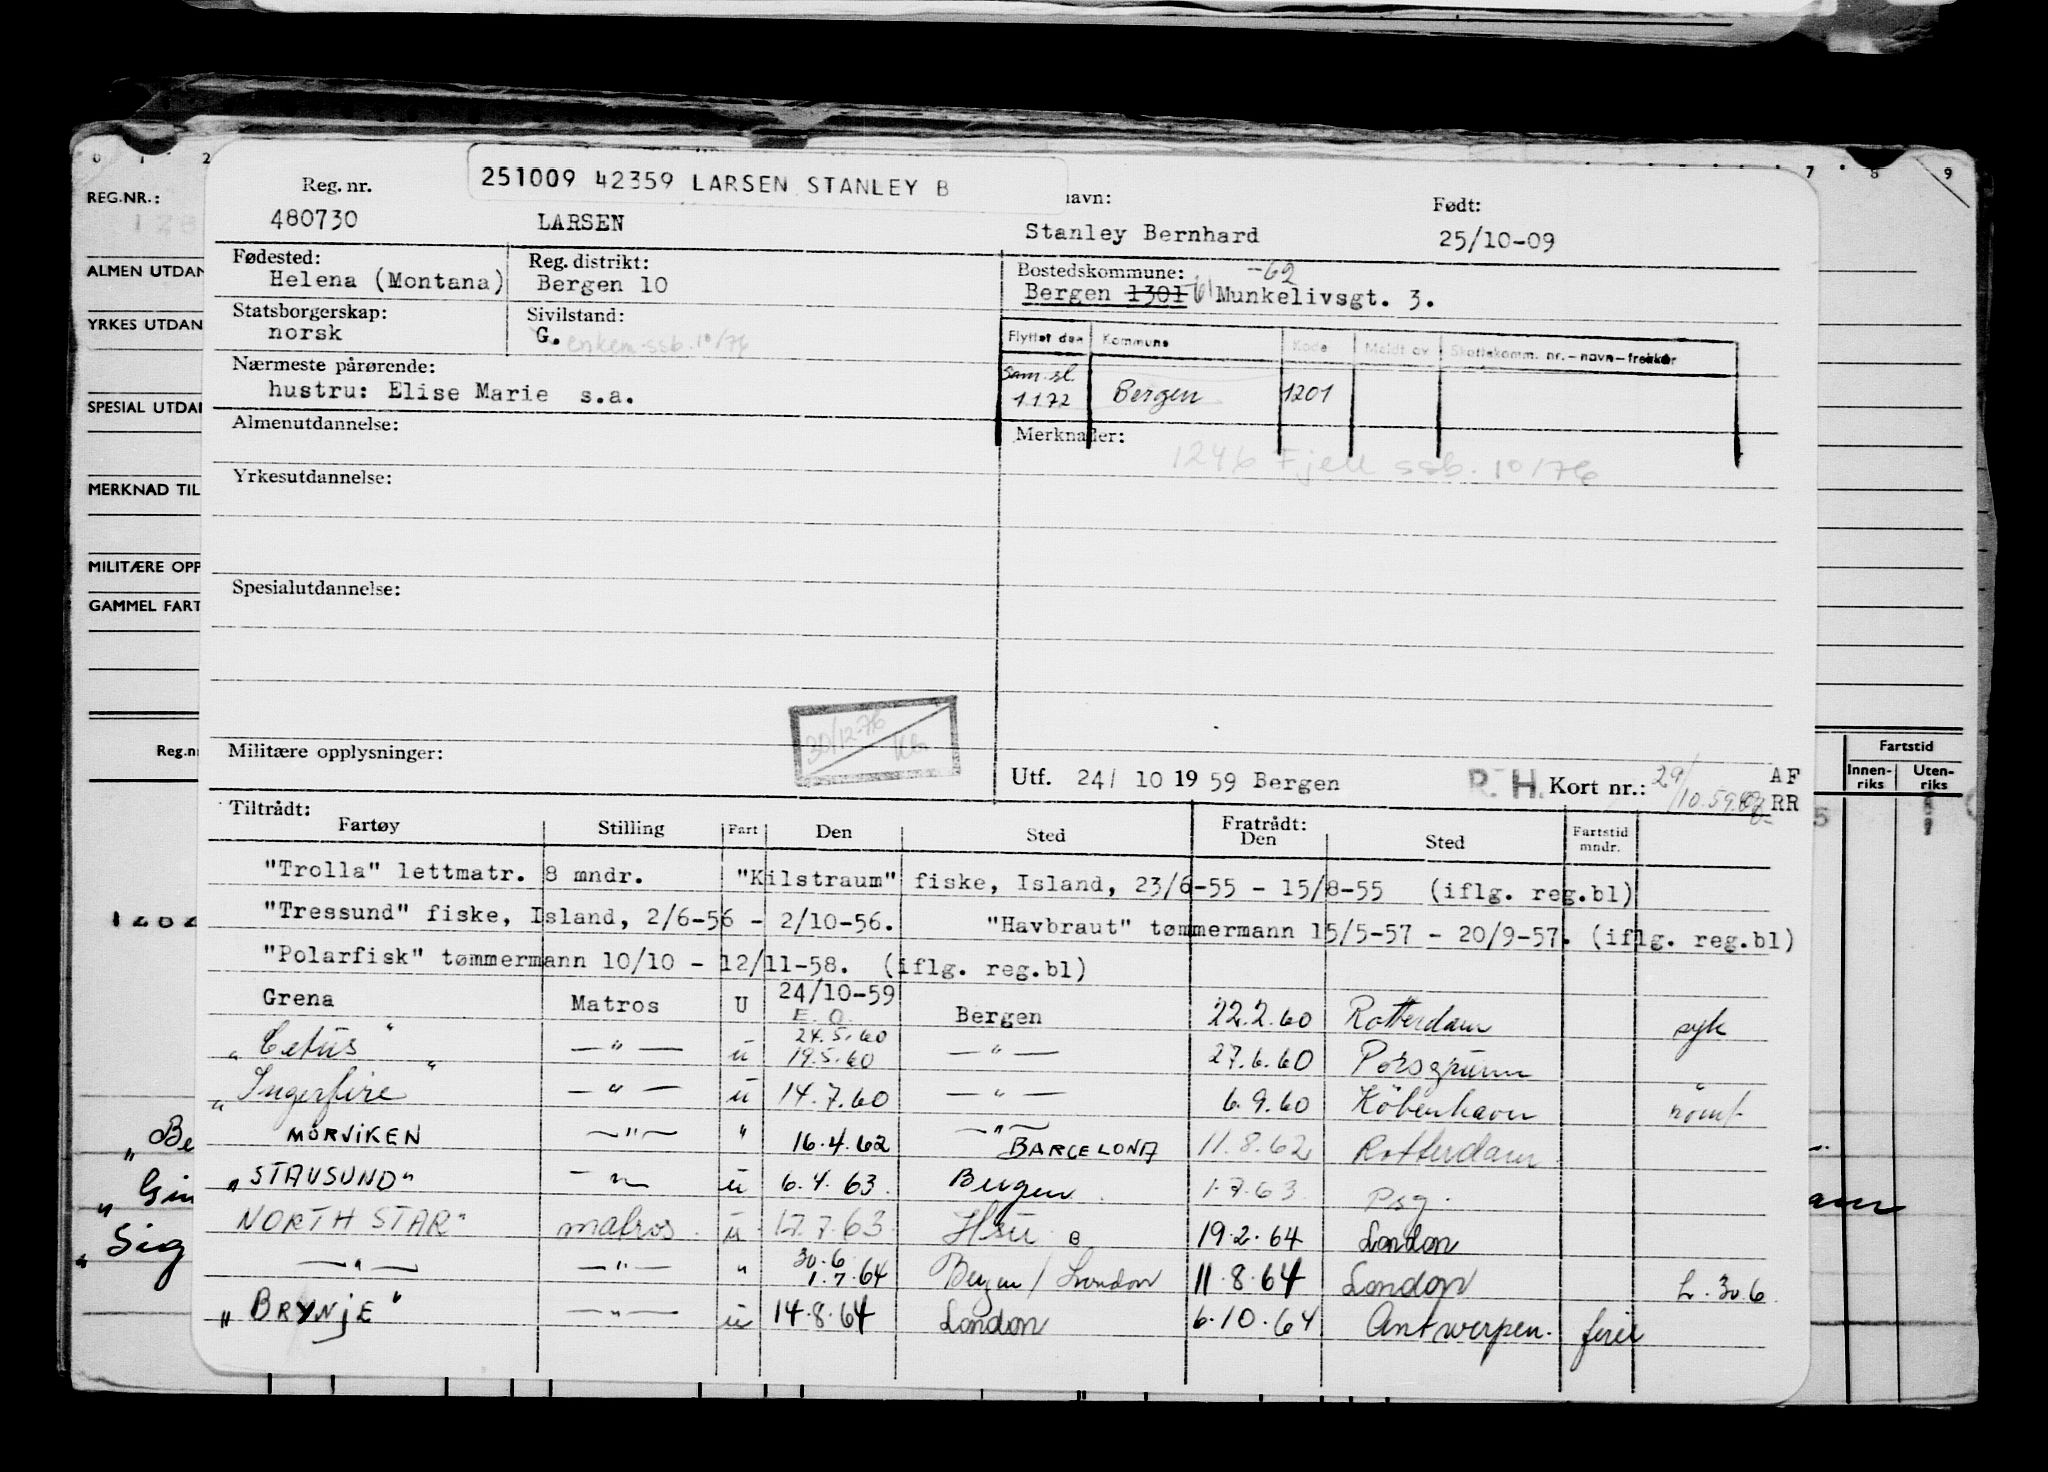 0 1 2 7 8 9
REG.NR.:
Reg. nr.
251009 42359 LARSEN STANLEY B
navn:
Født:
480730 LARSEN Stanley Bernhard 25/10-09
Fødested:
Helena (Montana)
Reg. distrikt:
Bergen 10
Bostedskommune: -62
Bergen 1301 61 Munkelivsgt. 3.
ALMEN UTDAN
Statsborgerskap:
norsk
Sivilstand:
G. enkem. ssb. 10/76
YRKES UTDAN
Flyttet den Kommune Kode Meldt av Skattekomm. nr.-navn-trekker
Sam.sl.
1.1.72 Bergen 1201
Nærmeste pårørende:
hustru: Elise Marie s.a.
SPESIAL UTDAN
Almenutdannelse:
Merknader:
1246 Fjell ssb. 10/76
Yrkesutdannelse:
MERKNAD TIL
MILITÆRE OPP
Spesialutdannelse:
GAMMEL FART
30/12-76
Militære opplysninger:
Utf. 24/ 10 1959 Bergen R.H. Kort nr.: 29/10.59 AF RR
Reg.nr
Fartstid
Innen-riks Uten-riks
Tiltrådt:
Fartøy Stilling Fart Den Sted Fratrådt: Den Sted Fartstid mndr.
"Trolla" lettmatr. 8 mndr. "Kilstraum" fiske, Island, 23/6-55 - 15/8-55 (iflg. reg.bl)
"Tressund" fiske, Island, 2/6-56 - 2/10-56. "Havbraut" tømmermann 15/5-57 - 20/9-57. (iflg. reg.bl)
"Polarfisk" tømmermann 10/10 - 12/11-58. (iflg. reg.bl)
Grena Matros U 24/10-59 E.O. Bergen 22.2.60 Rotterdam syk
"Cetus" —"— u 24.5.60 19.5.60 —"— 27.6.60 Porsgrunn
"Ingerfire" —"— u 14.7.60 —"— 6.9.60 København mønst
MORVIKEN —"— " 16.4.62 —"— BARCELONA 11.8.62 Rotterdam
"STAVSUND" —"— u 6.4.63 Bergen 1.7.63 Psg.
NORTH STAR" matros u 17.7.63 Hsu B 19.2.64 London
—"— —"— " 30.6 1.7.64 Bergen / London 11.8.64 London L. 30.6
"BRYNJE" —"— u 14.8.64 London 6.10.64 Antwerpen. ferie
"Be
"Gin
"Sig